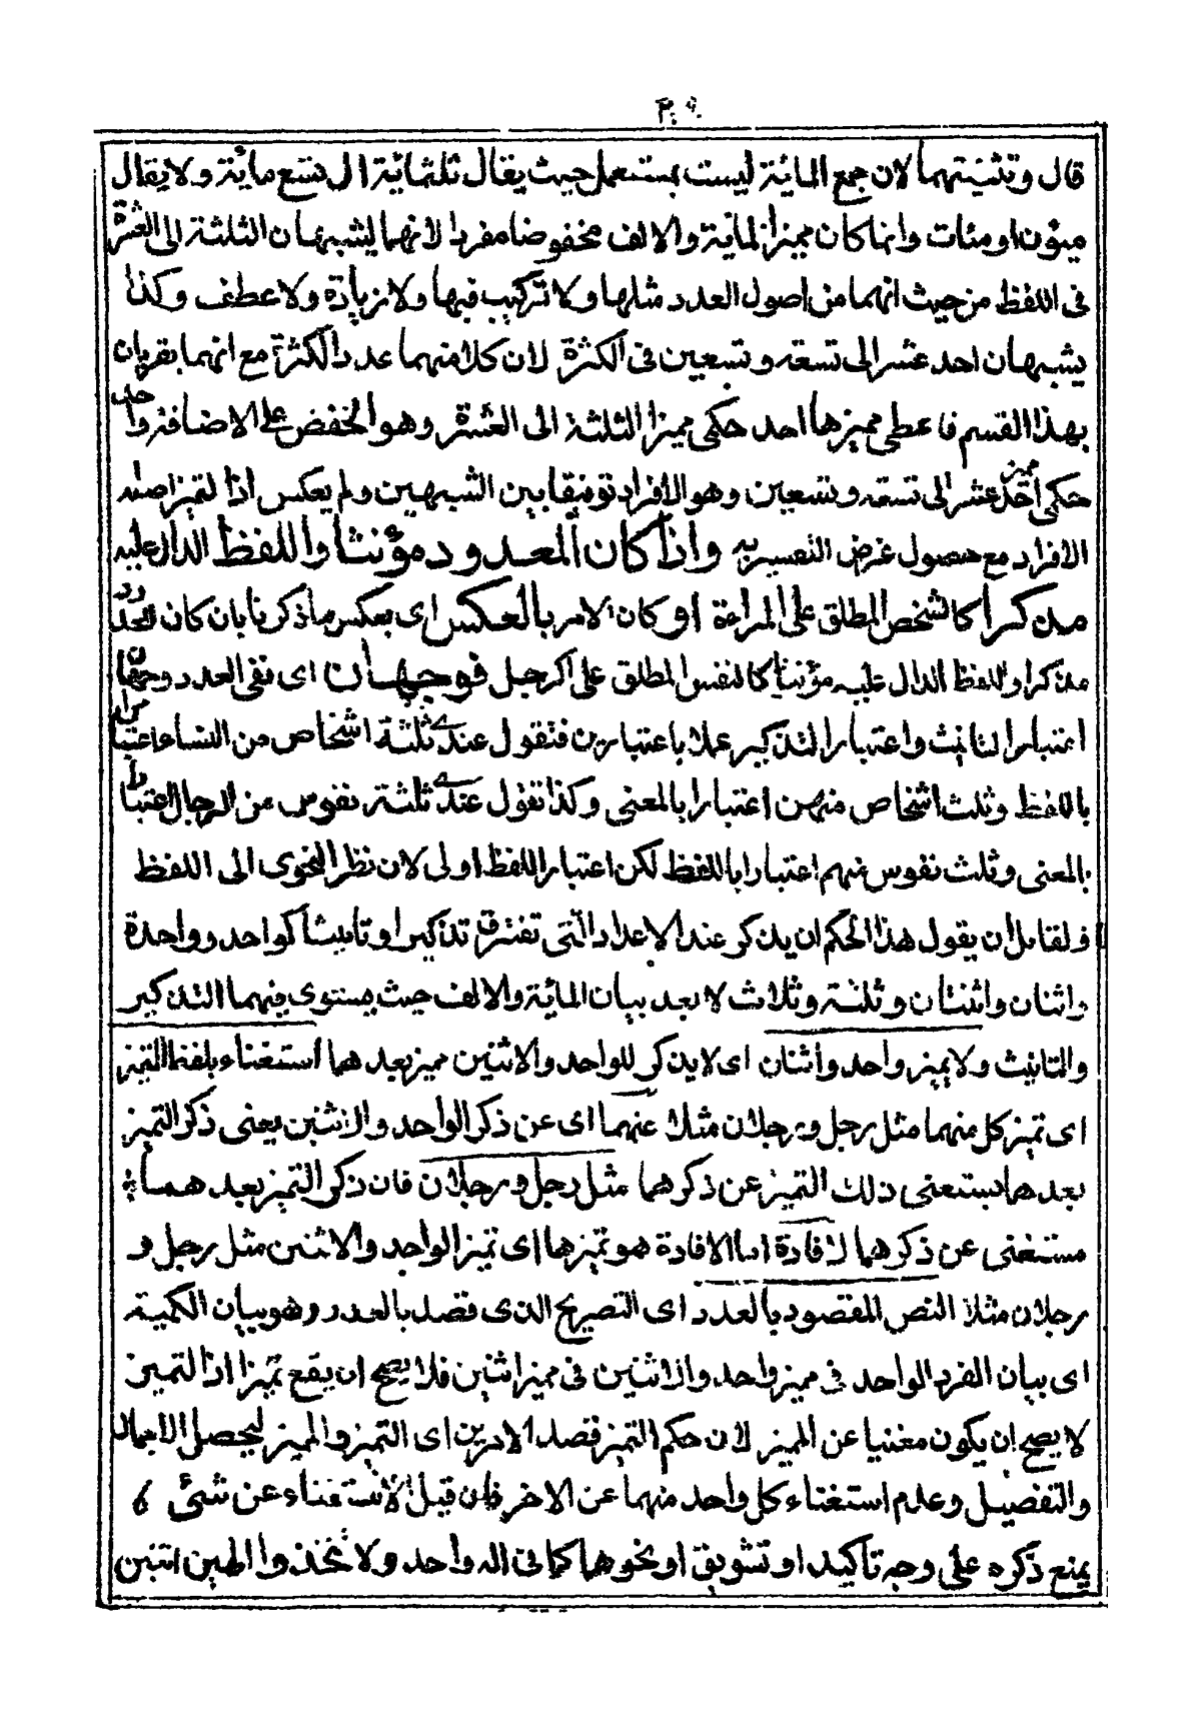 ٣٠٩
قال وتثنيتهما لان جمع المائية ليست بمستعمل حيث يقال ثلثمائية الى تسع مائة ولا يقال
ميؤن او مئات وانما كان مميز المائية والالف مخفوضا مفردا لانهما يشبهان الثلثة الى العشرة
فى اللفظ من حيث انهما من اصول العدد مثلها ولا تركيب فيها ولا زيادة ولا عطف وكذا
يشبهان احد عشر الى تسعة وتسعين فى الكثرة لان كلا منهما عدد الكثرة مع انهما يقربان
بهذا القسم فاعطى مميزها احد حكمى مميز الثلثة الى العشرة وهو الخفض على الاضافة واحد
حكمى مميز احد عشر الى تسعة وتسعين وهو الافراد توفيقا بين الشبهين ولم يعكس اذا لتميز اصله
الافراد مع حصول غرض التفسير به واذا كان المعدود مؤنثا واللفظ الدال عليه
مذكرا كالشخص المطلق على المراءة او كان الامر بالعكس اى بعكس ما ذكرنا بان كان المعدود
مذكرا واللفظ الدال عليه مؤنثا كالنفس المطلق على الرجل فوجهان اى ففى العدد وجهان
اعتبار التانيث واعتبار التذكير عملا باعتبارين فتقول عندے ثلثة اشخاص من النساء اعتبارا
باللفظ وثلث اشخاص منهن اعتبارا بالمعنى وكذا تقول عندے ثلثة نفوس من الرجال اعتبارا
بالمعنى وثلث نفوس منهم اعتبارا باللفظ لكن اعتبار اللفظ اولى لان نظر النحوى الى اللفظ
ولقائل ان يقول هذا الحكم ان يذكر عند الاعداد التى تفترق تذكيرا وتانيثا كواحد وواحدة
واثنان واثنتان وثلثة وثلاث لا بعد بيان المائية والالف حيث يستوى فيهما التذكير
والتانيث ولا يميز واحد واثنان اى لا يذكر للواحد والاثنين مميز بعدهما استغناء بلفظ التميز
اى تميز كل منهما مثل رجل ورجلان مثلا عنهما اى عن ذكر الواحد والاثنين يعنى ذكر التميز
بعدهما يستغنى ذلك التميز عن ذكرهما مثل رجل ورجلان فان ذكر التميز بعدهما
مستغنى عن ذكرهما لافادة اما الافادة هو تميزها اى تميز الواحد والاثنين مثل رجل و
رجلان مثلا النص المقصود بالعدد اى التصريح الذى قصد بالعدد وهو بيان الكمية
اى بيان الفرد الواحد فى مميز واحد والاثنين فى مميز اثنين فلا يصح ان يقع تميزا اذا لتميز
لا يصح ان يكون مغنيا عن المميز لان حكم التميز قصد الامرين اى التميز والمميز ليحصل الاجمال
والتفصيل وعدم استغناء كل واحد منهما عن الاخر فان قيل الاستغناء عن شئ لا
يمنع ذكره على وجه تاكيد او تشويق او نحوها كما فى اله واحد ولا تتخذوا الهين اثنين